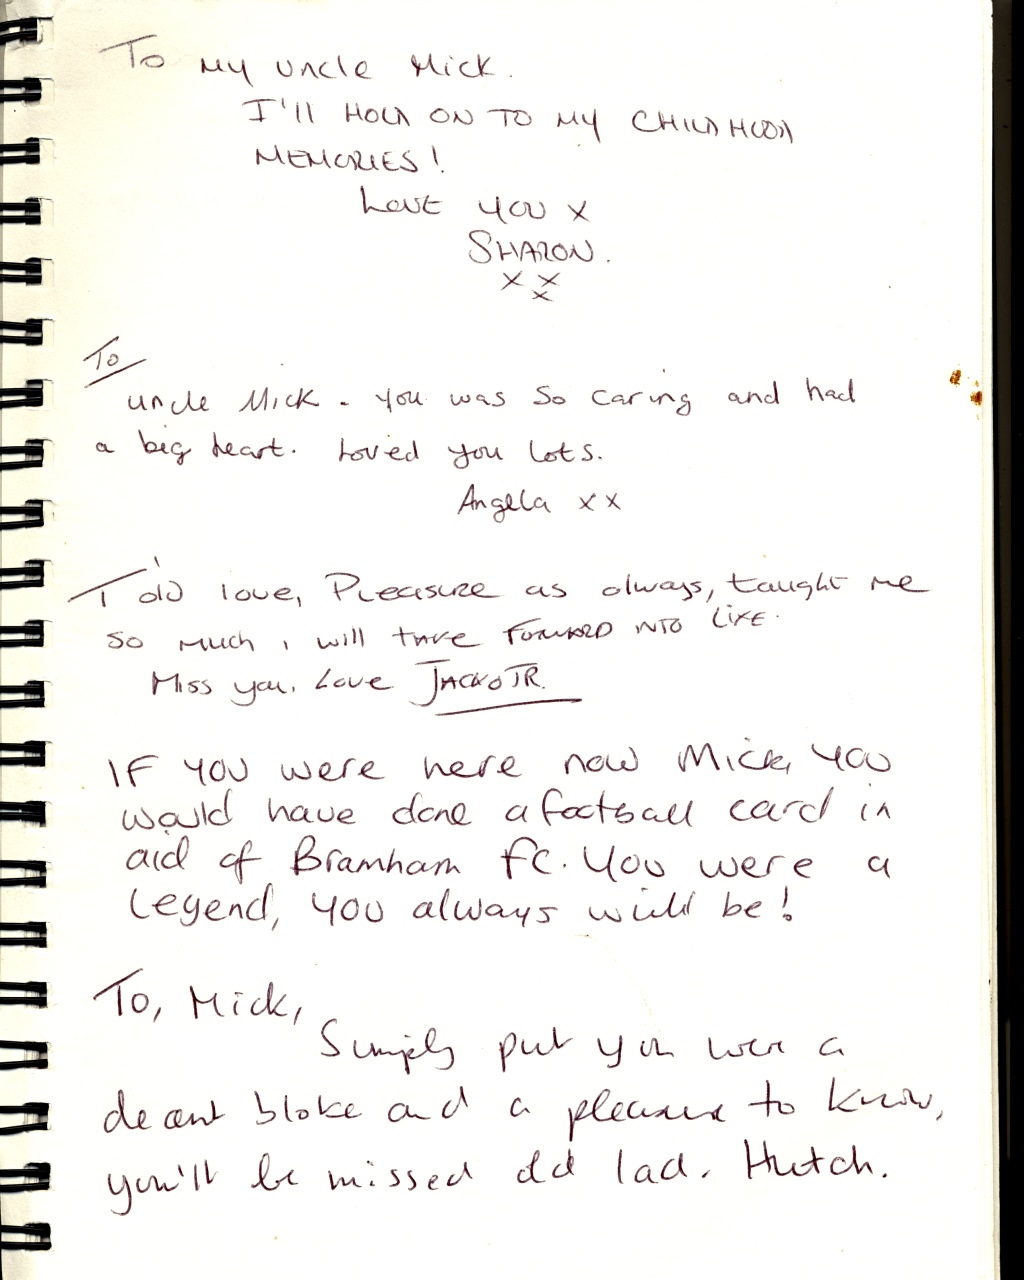 To my uncle Mick.
I'll HOLD ON TO MY CHILDHOOD
MEMORIES!
Love you x
SHARON.
x x
x
To
uncle Mick. You was so caring and had
a big heart. Loved you lots.
Angela xx
T'old love, Pleasure as always, taught me
so much i will take FORWARD INTO LIFE.
Miss you. Love JACKO JR.
IF you were here now Mick, you
would have done a football card in
aid of Bramham FC. You were a
Legend, you always will be!
To, Mick,
Simply put you were a
decent bloke and a pleasure to know,
you'll be missed old lad. Hutch.